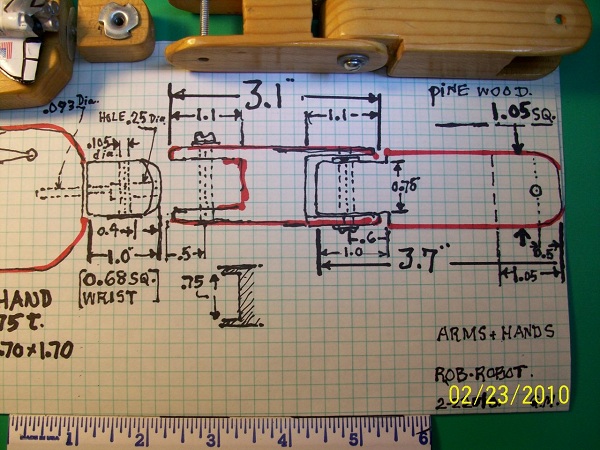 .093 Dia.
HOLE .25 Dia.
.105
dia.
3.1"
1.1
1.1
PINE WOOD.
1.05 SQ.
0.75
0.4
1.0"
[0.68 SQ.
WRIST]
.5
.75
.6
1.0
3.7"
0.5
1.05
HAND
75 t.
.70 x 1.70
ARMS + HANDS
ROB-ROBOT.
02/23/2010
1 2 3 4 5 6